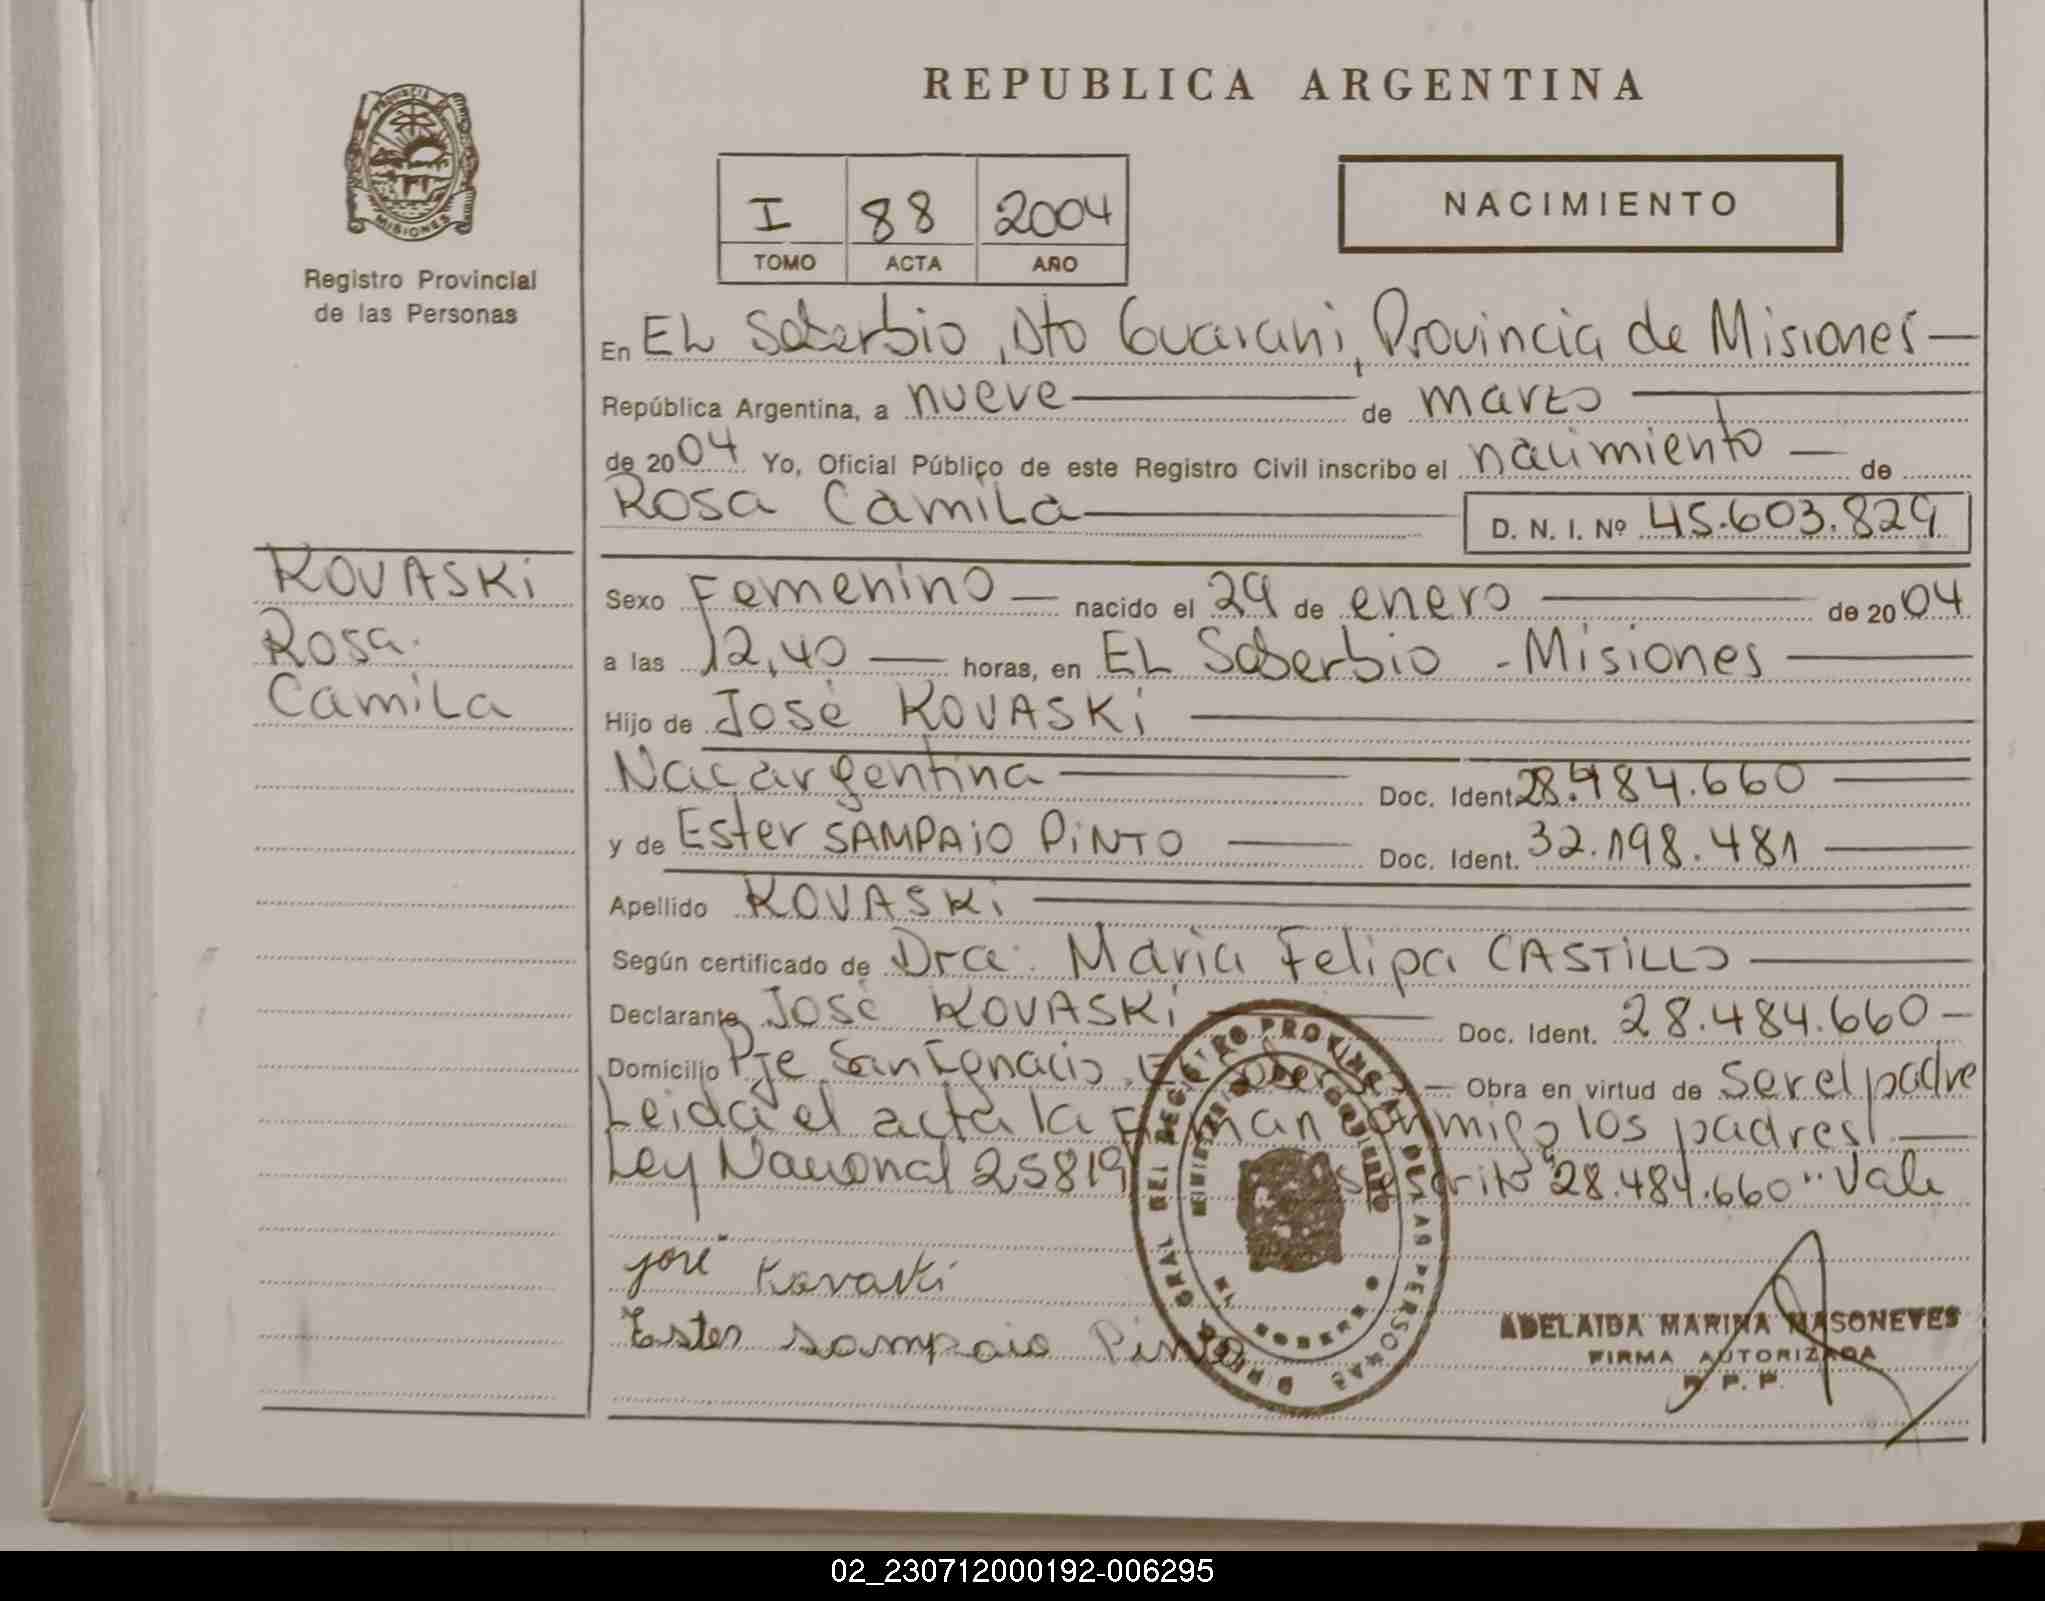 REPUBLICA ARGENTINA
PROVINCIA
MISIONES
Registro Provincial
de las Personas
I 88 2004
TOMO ACTA AÑO
NACIMIENTO
En EL Soberbio, Dto Guarani, Provincia de Misiones
República Argentina, a nueve de marzo
de 2004 Yo, Oficial Público de este Registro Civil inscribo el nacimiento de
Rosa Camila D. N. I. Nº 45.603.829
KOVASKi
Rosa
Camila
Sexo Femenino nacido el 29 de enero de 2004
a las 12,40 horas, en EL Soberbio - Misiones
Hijo de José KOVASKi
Nac argentina Doc. Ident. 28.484.660
y de Ester SAMPAiO PiNTO Doc. Ident. 32.198.481
Apellido KOVASKi
Según certificado de Dra. Maria Felipa CASTiLLO
Declarante José KOVASKi Doc. Ident. 28.484.660
Domicilio Pje San Ignacio, El Soberbio Obra en virtud de ser el padre
Leida el acta la Firman conmigo los padres
Ley Nacional 25819 "28.484.660" Vale
José Kovaski
Ester Sampaio Pinto
ADELAIDA MARINA MASONEVES
FIRMA AUTORIZADA
R. P. P.
02_230712000192-006295